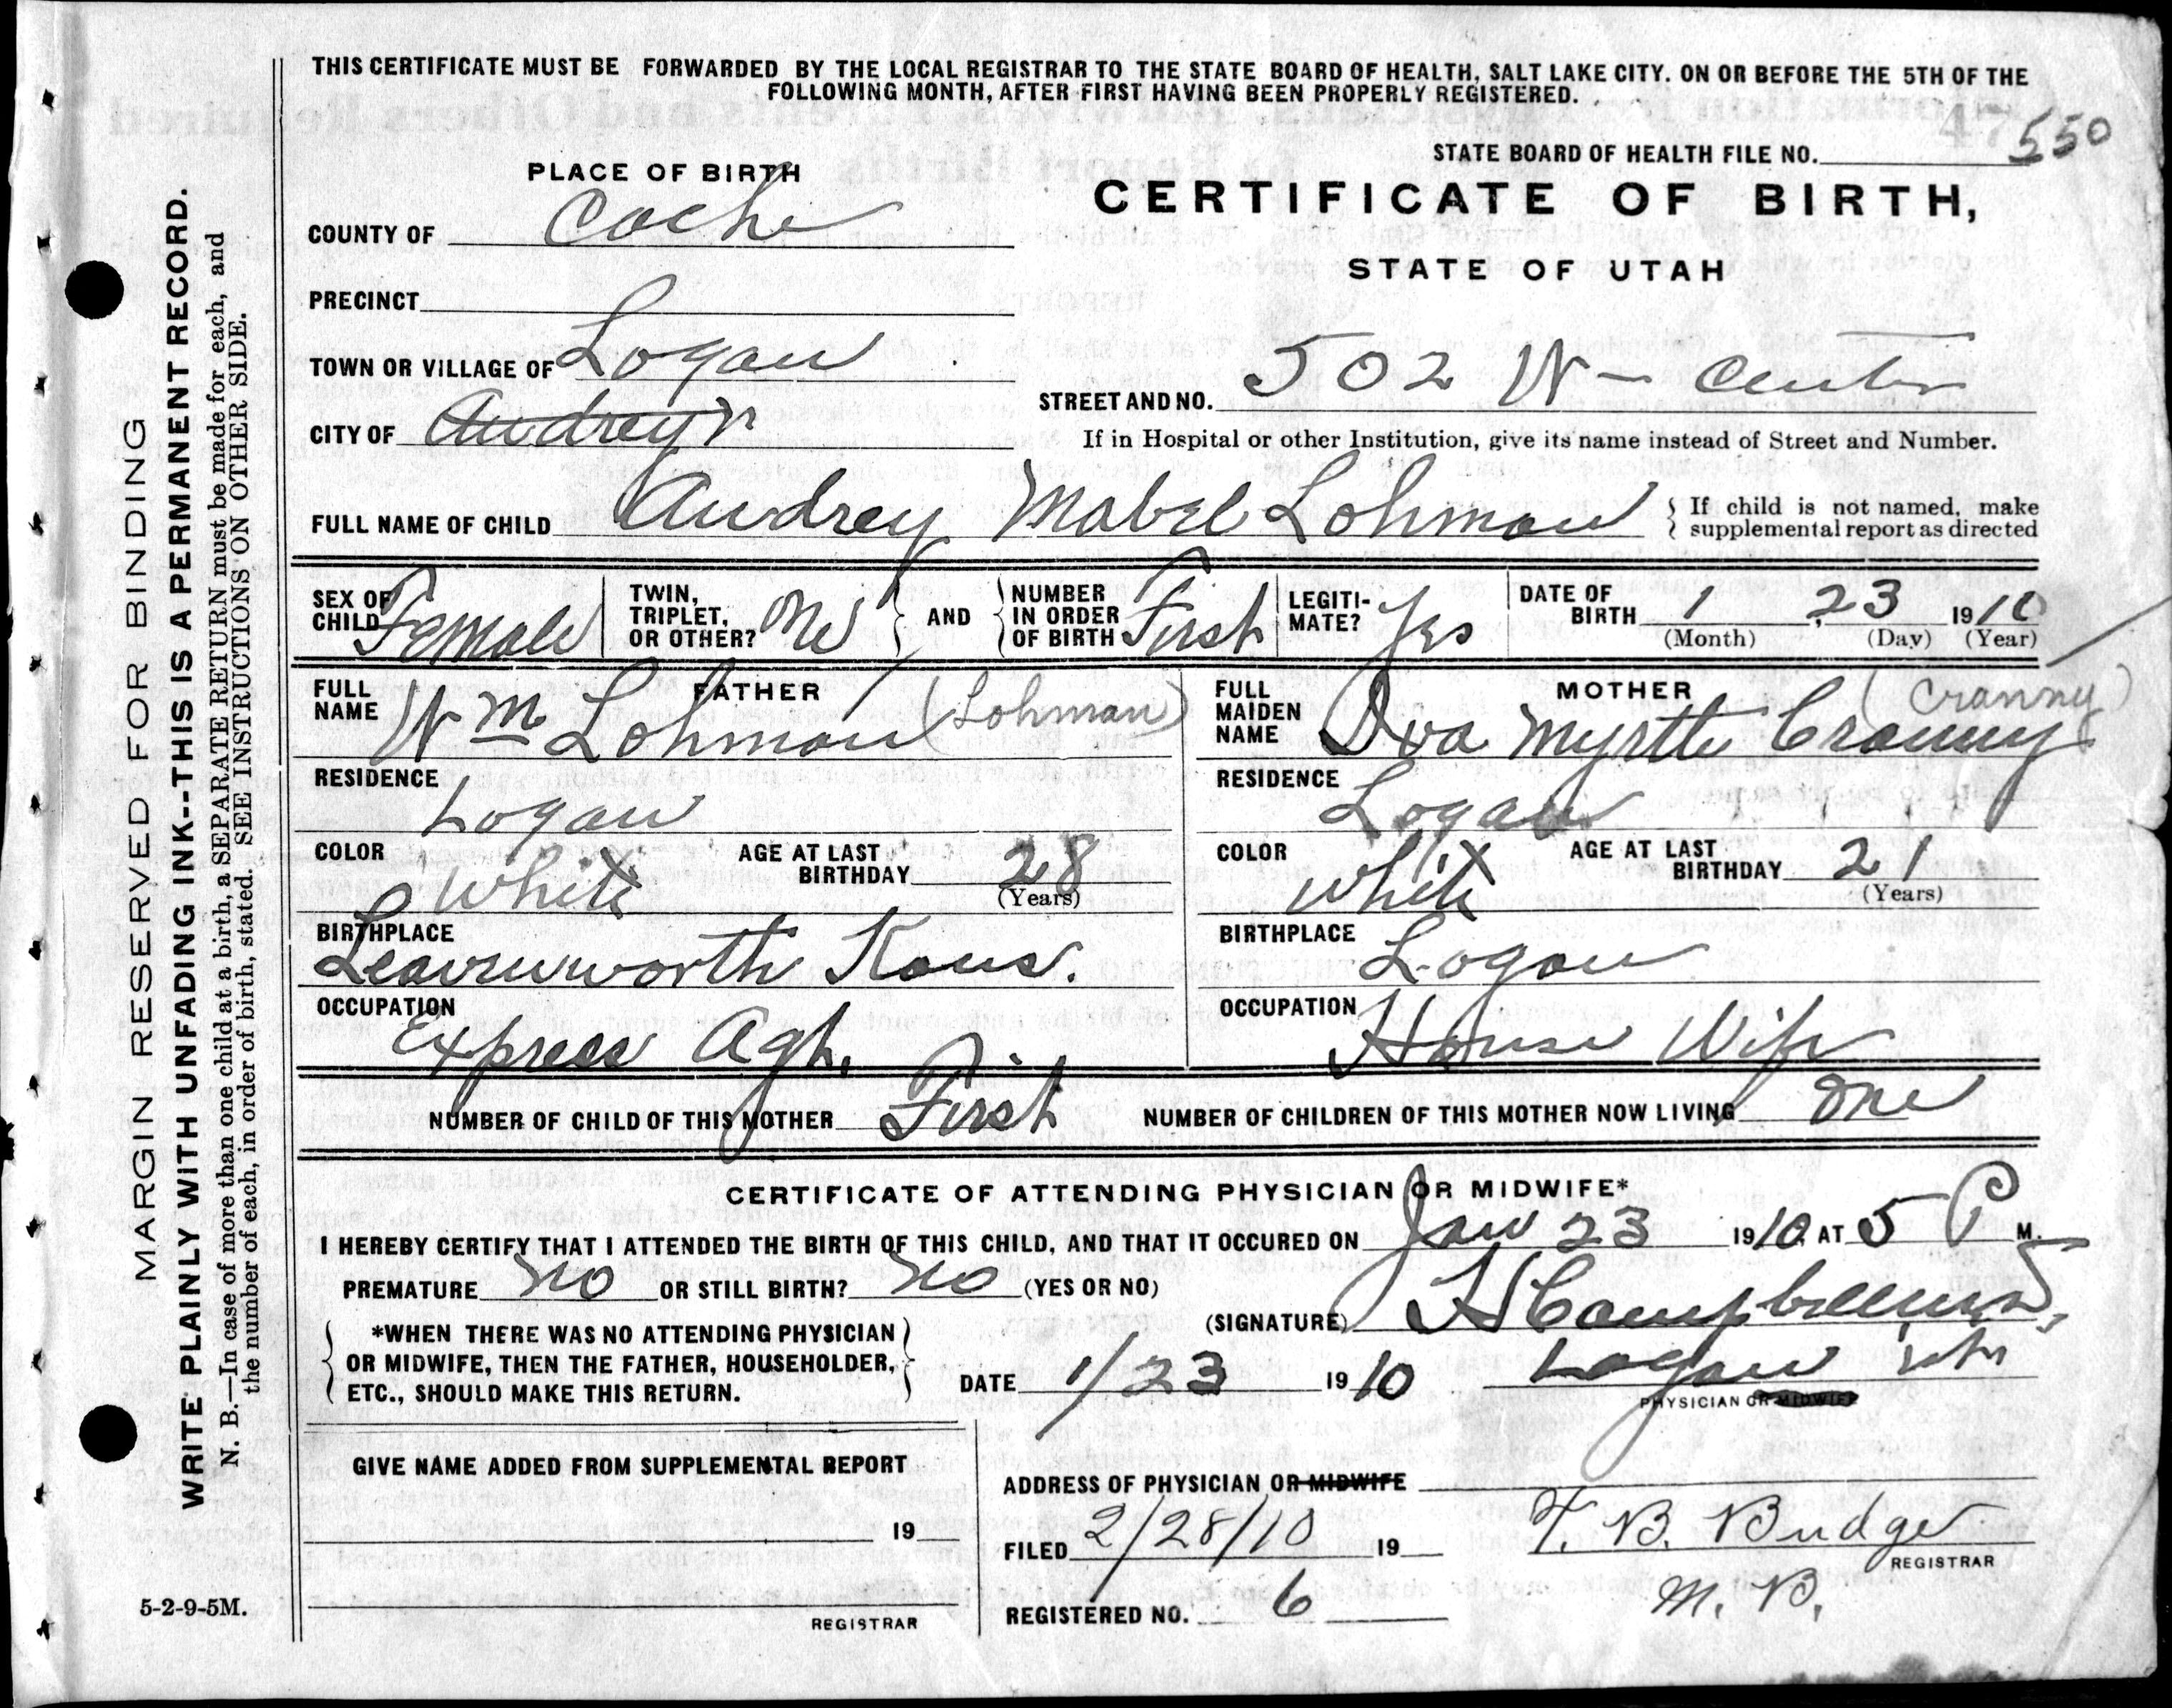 THIS CERTIFICATE MUST BE FORWARDED BY THE LOCAL REGISTRAR TO THE STATE BOARD OF HEALTH, SALT LAKE CITY. ON OR BEFORE THE 5TH OF THE
FOLLOWING MONTH, AFTER FIRST HAVING BEEN PROPERLY REGISTERED.
STATE BOARD OF HEALTH FILE NO. 550
PLACE OF BIRTH
CERTIFICATE OF BIRTH,
STATE OF UTAH
COUNTY OF Cache
PRECINCT
TOWN OR VILLAGE OF Logan
STREET AND NO. 502 W - Center
CITY OF Audrey
If in Hospital or other Institution, give its name instead of Street and Number.
FULL NAME OF CHILD Audrey Mabel Lohman
If child is not named, make
supplemental report as directed
SEX OF CHILD Female
TWIN, TRIPLET, OR OTHER? One
AND
NUMBER IN ORDER OF BIRTH First
LEGITI-MATE? Yes
DATE OF BIRTH 1 23 1910
(Month) (Day) (Year)
FATHER
FULL NAME Wm Lohman (Lohman)
RESIDENCE
Logan
COLOR White
AGE AT LAST BIRTHDAY 28
(Years)
BIRTHPLACE
Leavenworth Kans.
OCCUPATION
Express Agt.
MOTHER
FULL MAIDEN NAME Iva Myrtle Cranny (Cranny)
RESIDENCE
Logan
COLOR White
AGE AT LAST BIRTHDAY 21
(Years)
BIRTHPLACE Logan
OCCUPATION House Wife
NUMBER OF CHILD OF THIS MOTHER First
NUMBER OF CHILDREN OF THIS MOTHER NOW LIVING One
CERTIFICATE OF ATTENDING PHYSICIAN OR MIDWIFE*
I HEREBY CERTIFY THAT I ATTENDED THE BIRTH OF THIS CHILD, AND THAT IT OCCURED ON Jan 23 1910 AT 5 P M.
PREMATURE No OR STILL BIRTH? No (YES OR NO)
(SIGNATURE)
*WHEN THERE WAS NO ATTENDING PHYSICIAN
OR MIDWIFE, THEN THE FATHER, HOUSEHOLDER,
ETC., SHOULD MAKE THIS RETURN.
DATE 1/23 1910
Logan
PHYSICIAN OR MIDWIFE
GIVE NAME ADDED FROM SUPPLEMENTAL REPORT
19
REGISTRAR
ADDRESS OF PHYSICIAN OR MIDWIFE
FILED 2/28/10 19
T. B. Budge
REGISTRAR
REGISTERED NO. 6
5-2-9-5M.
MARGIN RESERVED FOR BINDING
WRITE PLAINLY WITH UNFADING INK--THIS IS A PERMANENT RECORD.
N. B.—In case of more than one child at a birth, a SEPARATE RETURN must be made for each, and
the number of each, in order of birth, stated. SEE INSTRUCTIONS ON OTHER SIDE.